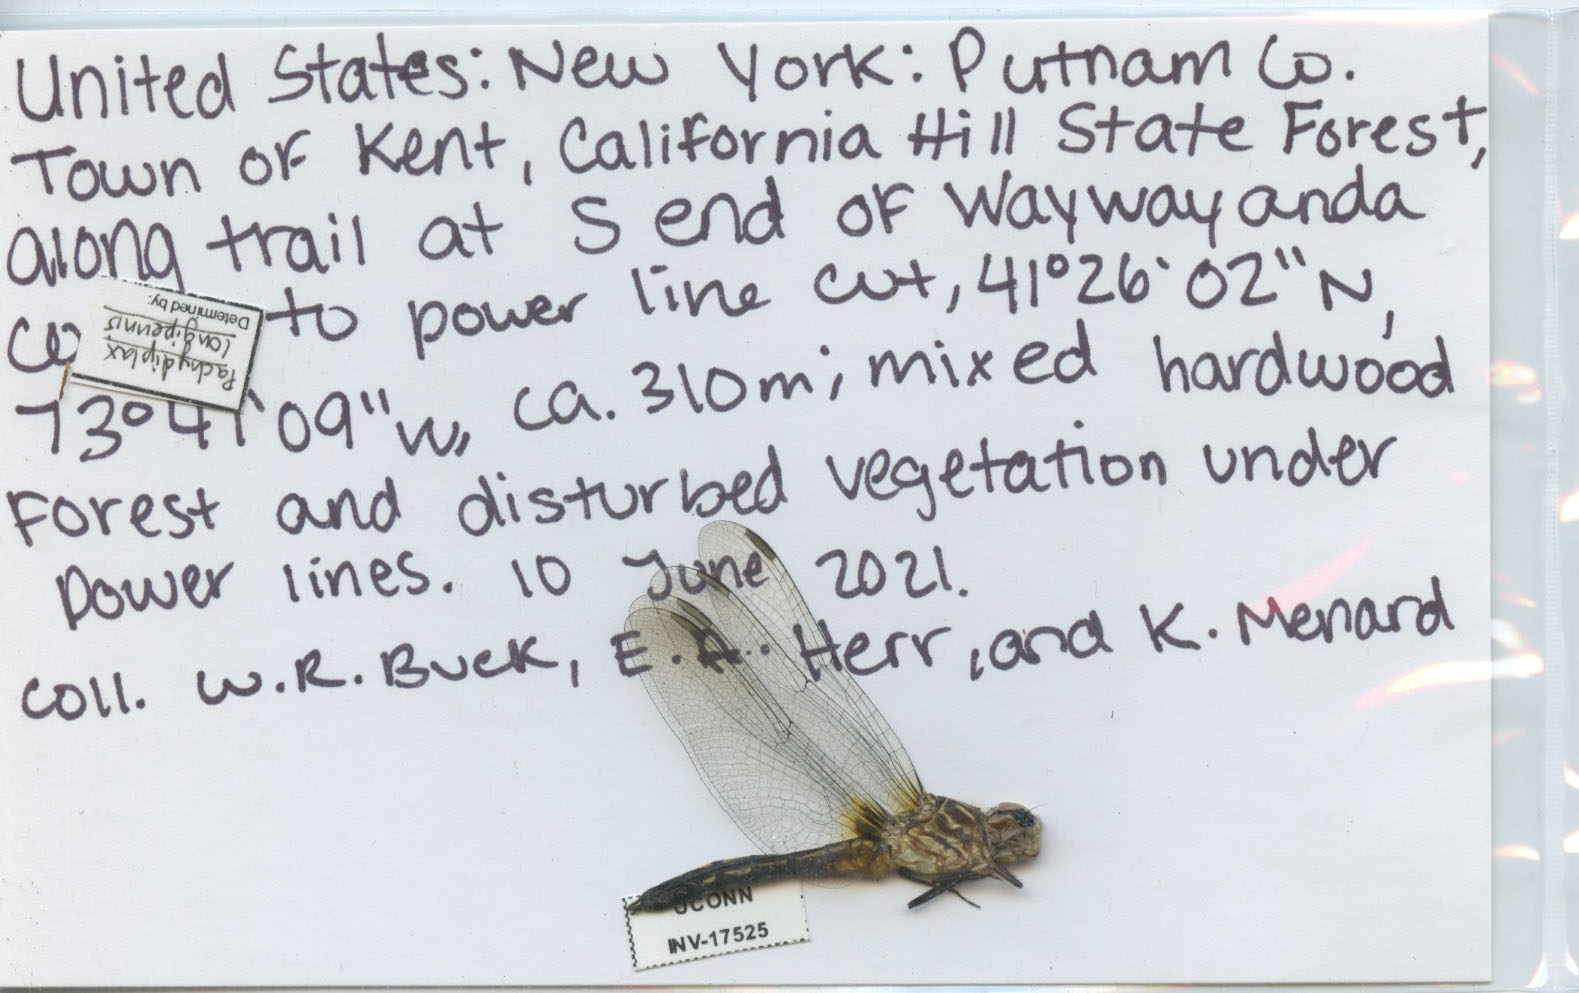 United States: New York: Putnam Co.
Town of Kent, California Hill State Forest,
along trail at S end of Waywayanda
to power line cut, 41°26'02"N,
73°41'09"W, ca. 310m; mixed hardwood
Forest and disturbed vegetation under
power lines. 10 June 2021.
coll. W.R. Buck, E.A. Herr, and K. Menard
Pachydiplax
longipennis
Determined by:
UCONN
INV-17525